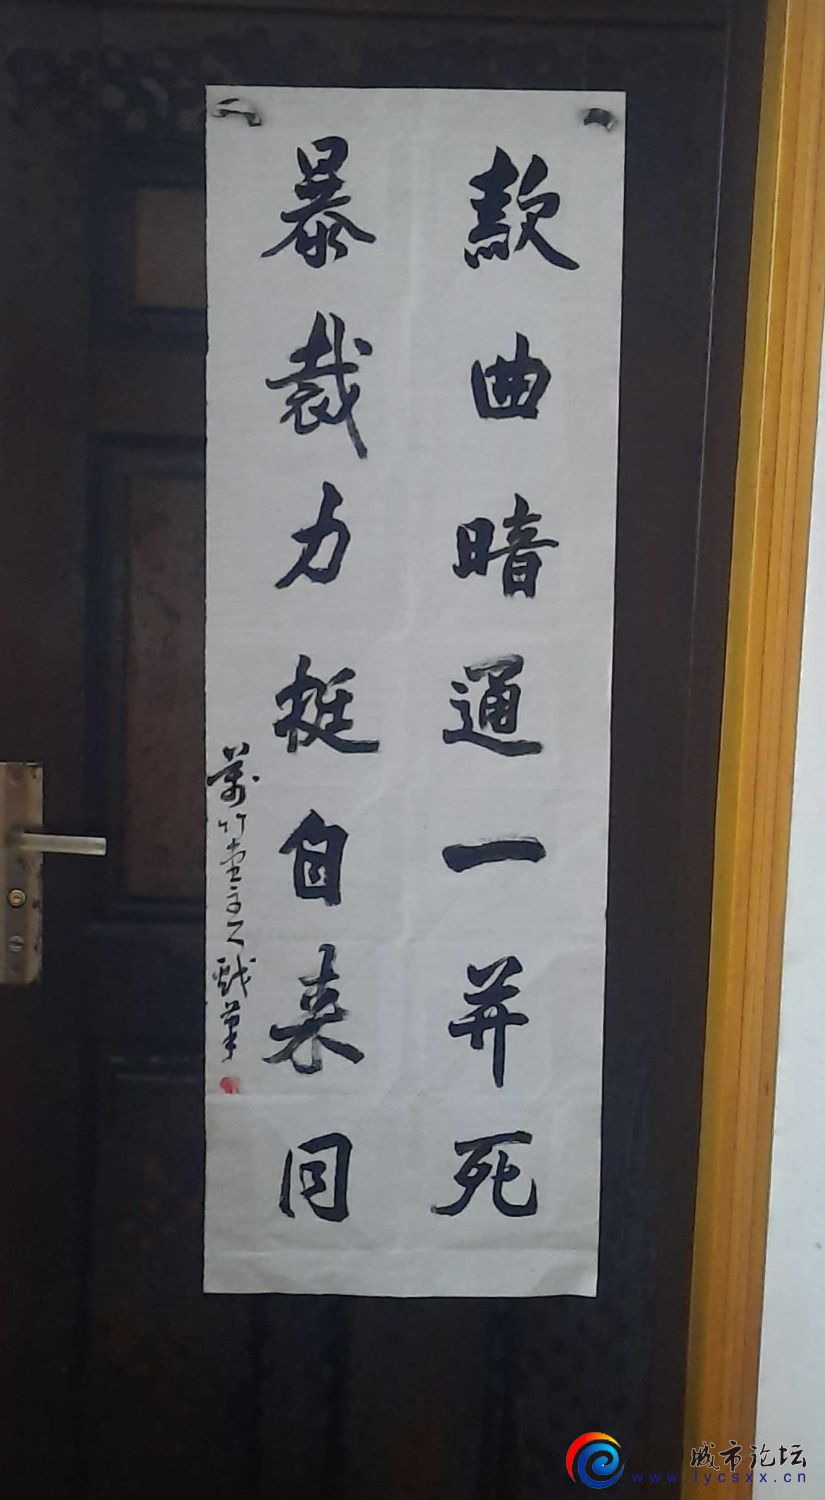 款曲暗通一并死
暴裁力挺自来同
萬竹堂主人戲筆
城市论坛
www.lycsxx.cn